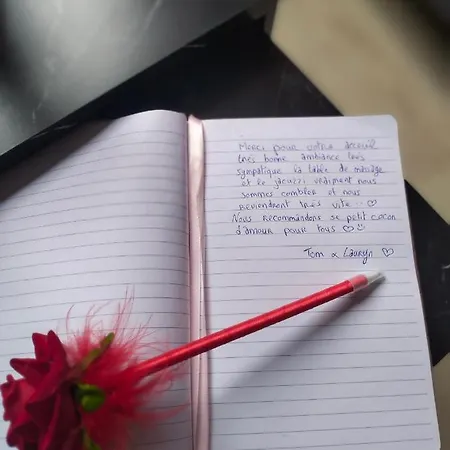 Merci pour votre acceuil
très bonne ambiance très
sympatique la table de massage
et le jacuzzi vraiment nous
sommes combler et nous
reviendront très vite ♡
Nous recommandons se petit cocon
d'amour pour tous ♡☺
Tom & Lauryn ♡